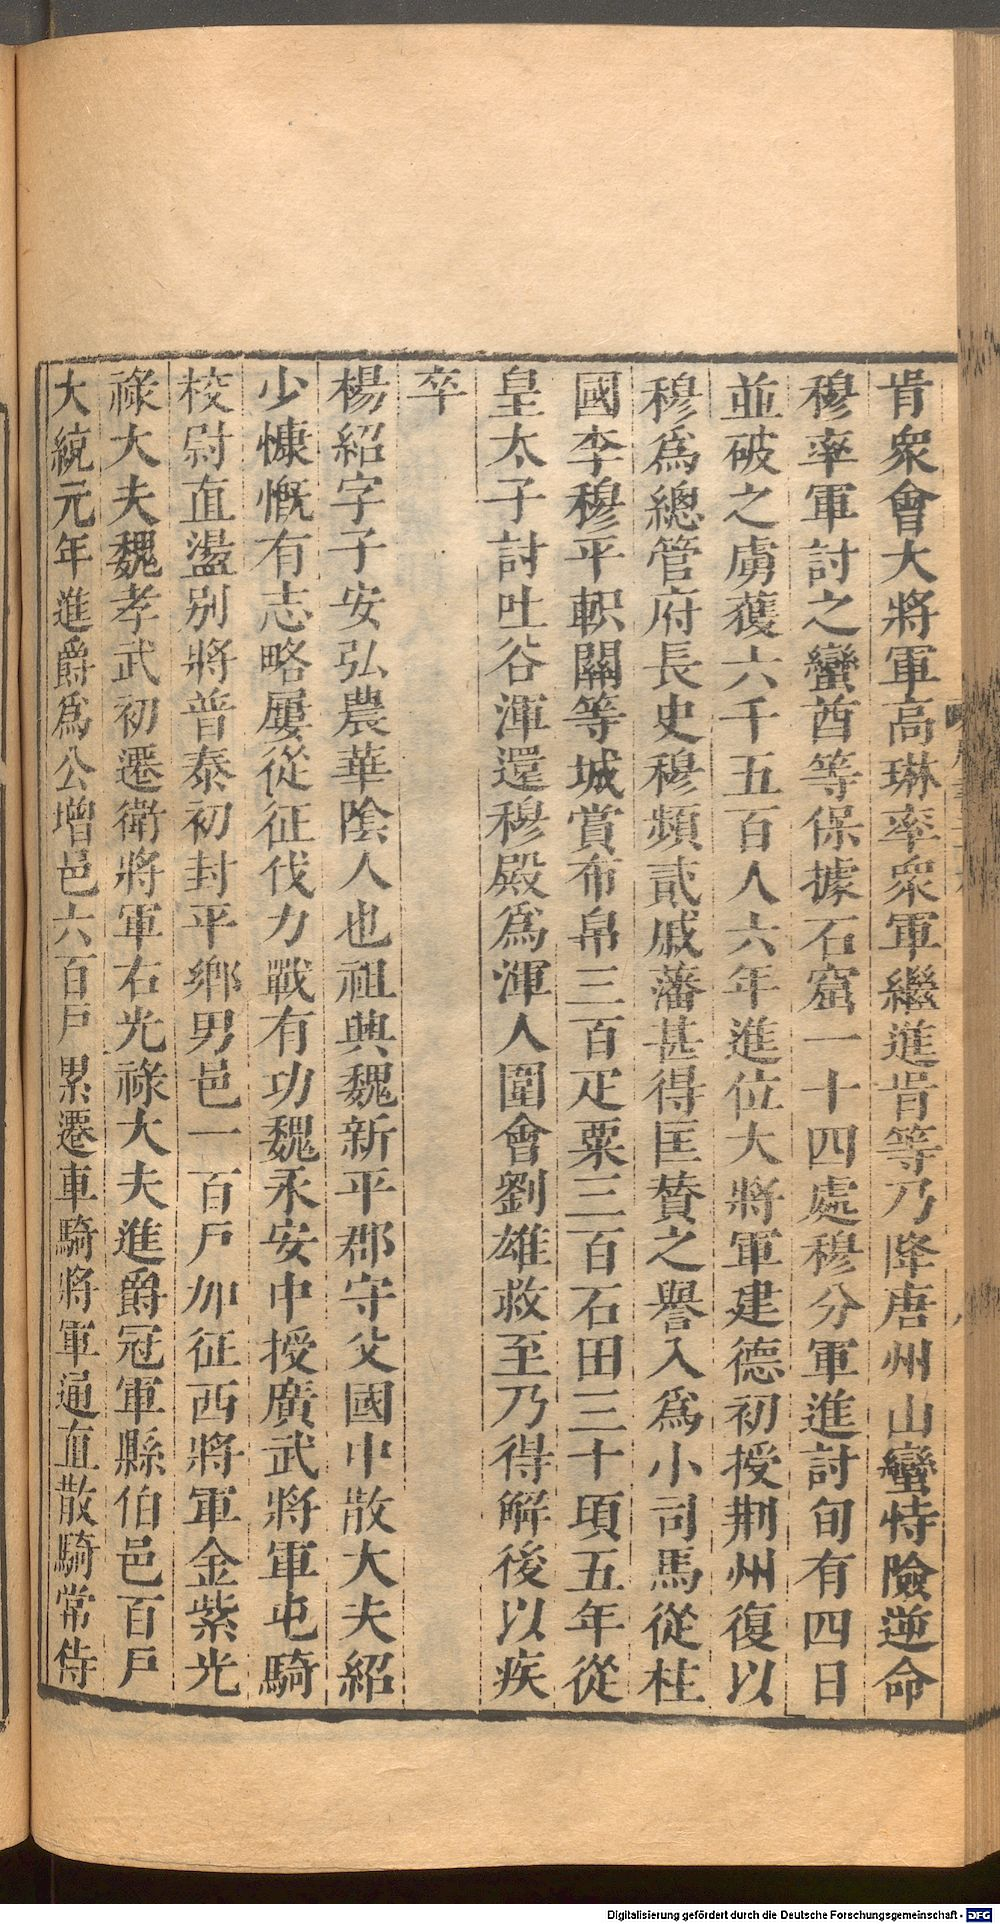 肯衆會大將軍高琳率衆軍繼進肯等乃降唐州山蠻恃險逆命
穆率軍討之蠻酋等保據石窟一十四處穆分軍進討旬有四日
並破之虜獲六千五百人六年進位大將軍建德初授荆州復以
穆爲總管府長史穆頻貳戚藩甚得匡賛之譽入爲小司馬從柱
國李穆平軹關等城賞布帛三百疋粟三百石田三十頃五年從
皇太子討吐谷渾還穆殿爲渾人圍會劉雄救至乃得解後以疾
卒
楊紹字子安弘農華陰人也祖興魏新平郡守父國中散大夫紹
少慷慨有志略屢從征伐力戰有功魏永安中授廣武將軍屯騎
校尉直盪别將普泰初封平鄉男邑一百戸加征西將軍金紫光
祿大夫魏孝武初遷衛將軍右光祿大夫進爵冠軍縣伯邑百戸
大統元年進爵爲公增邑六百戸累遷車騎將軍通直散騎常侍
Digitalisierung gefördert durch die Deutsche Forschungsgemeinschaft - DFG